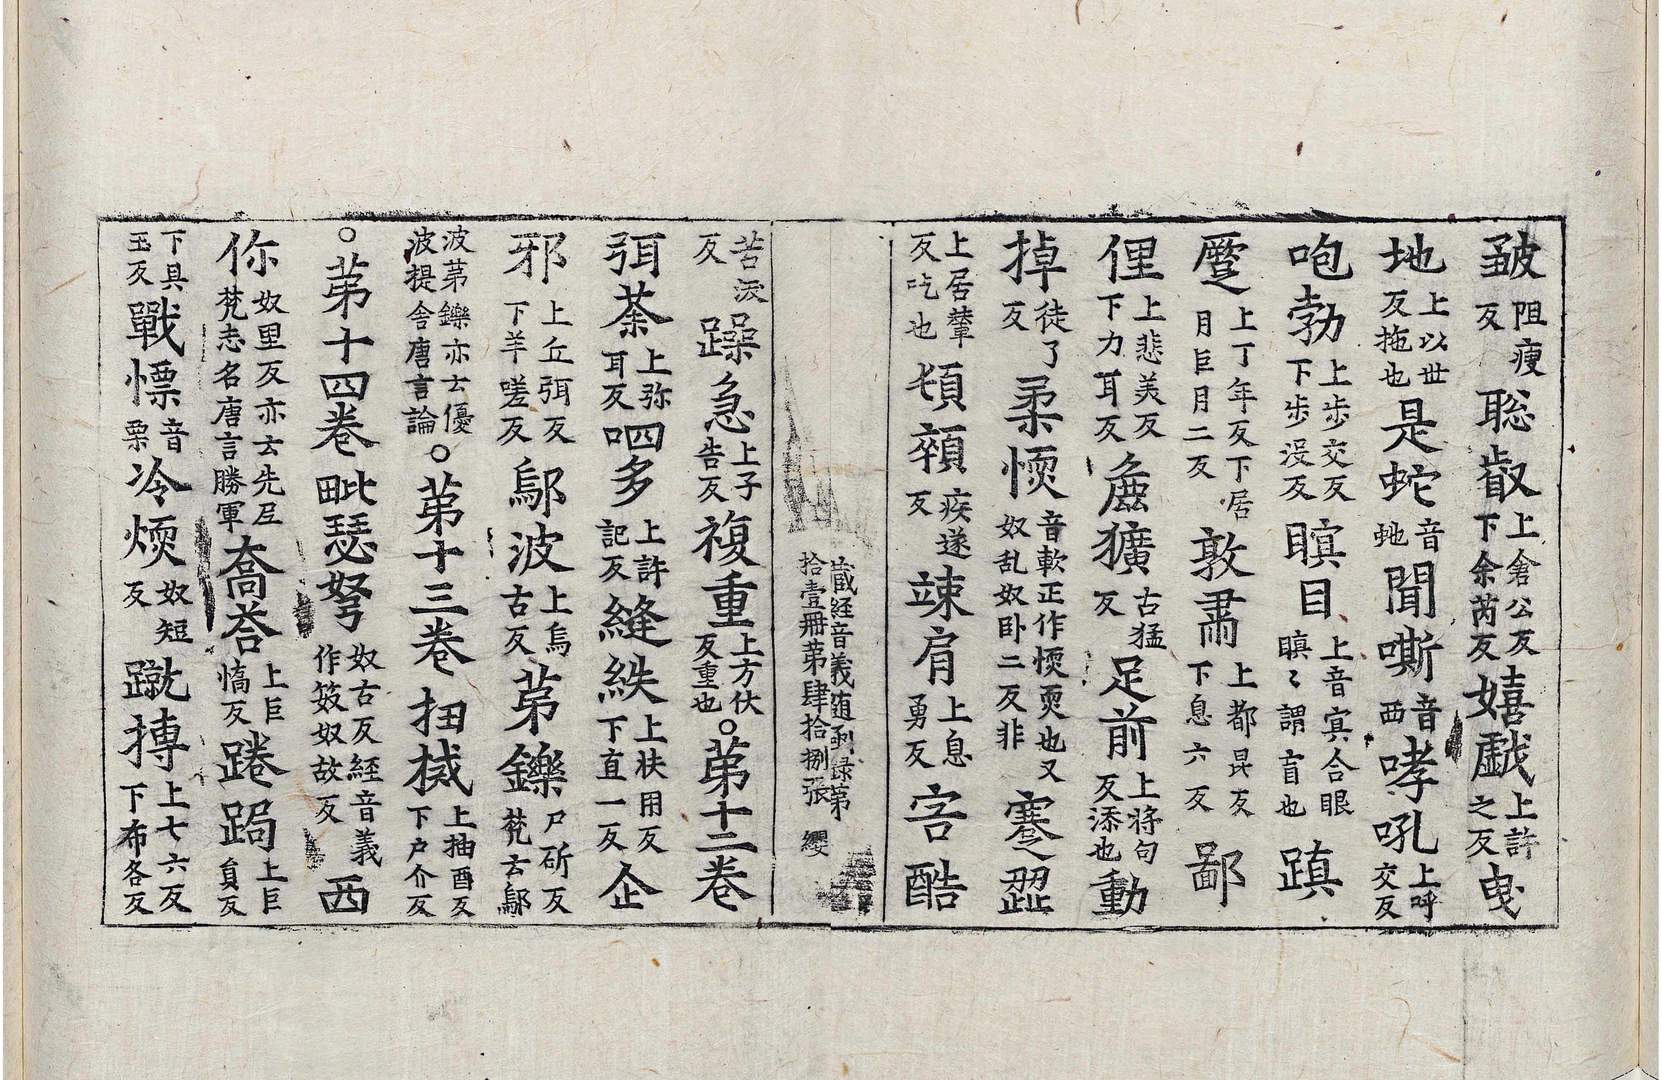 皺阻瘦反聡叡上倉公反下余芮反嬉戯上許之反曳
地上以世反拖也是蛇音虵聞嘶音西哮吼上呼交反
咆勃上步交反下步没反瞑目上音㝠合眼瞑〻謂盲也蹎
蹷上丁年反下居月巨月二反敦肅上都昆反下息六反鄙
俚上悲美反下力耳反麁獷古猛反足前上将句反添也動
掉徒了反柔愞音軟正作愞耎也又奴乱奴卧二反非蹇澀
上居輦反吃也頓顇疾遂反竦肩上息勇反害酷
蔵経音義随函録第拾壹冊第肆拾捌張 纓
苦沃反躁急上子告反複重上方伏反重也。苐十二巻
弭荼上弥耳反呬多上許記反縫紩上扶用反下直一反企
邪上丘弭反下羊嗟反鄔波上烏古反苐鑠尸斫反梵云鄔
波苐鑠亦云優波提舍唐言論。苐十三巻杻械上抽酉反下户介反
。苐十四巻毗瑟弩奴古反経音義作笯奴故反西
你奴里反亦云先𡰱梵志名唐言勝軍喬荅上巨憍反踡跼上巨負反
下具玉反戰慄音栗冷煗奴短反蹴摶上七六反下布各反